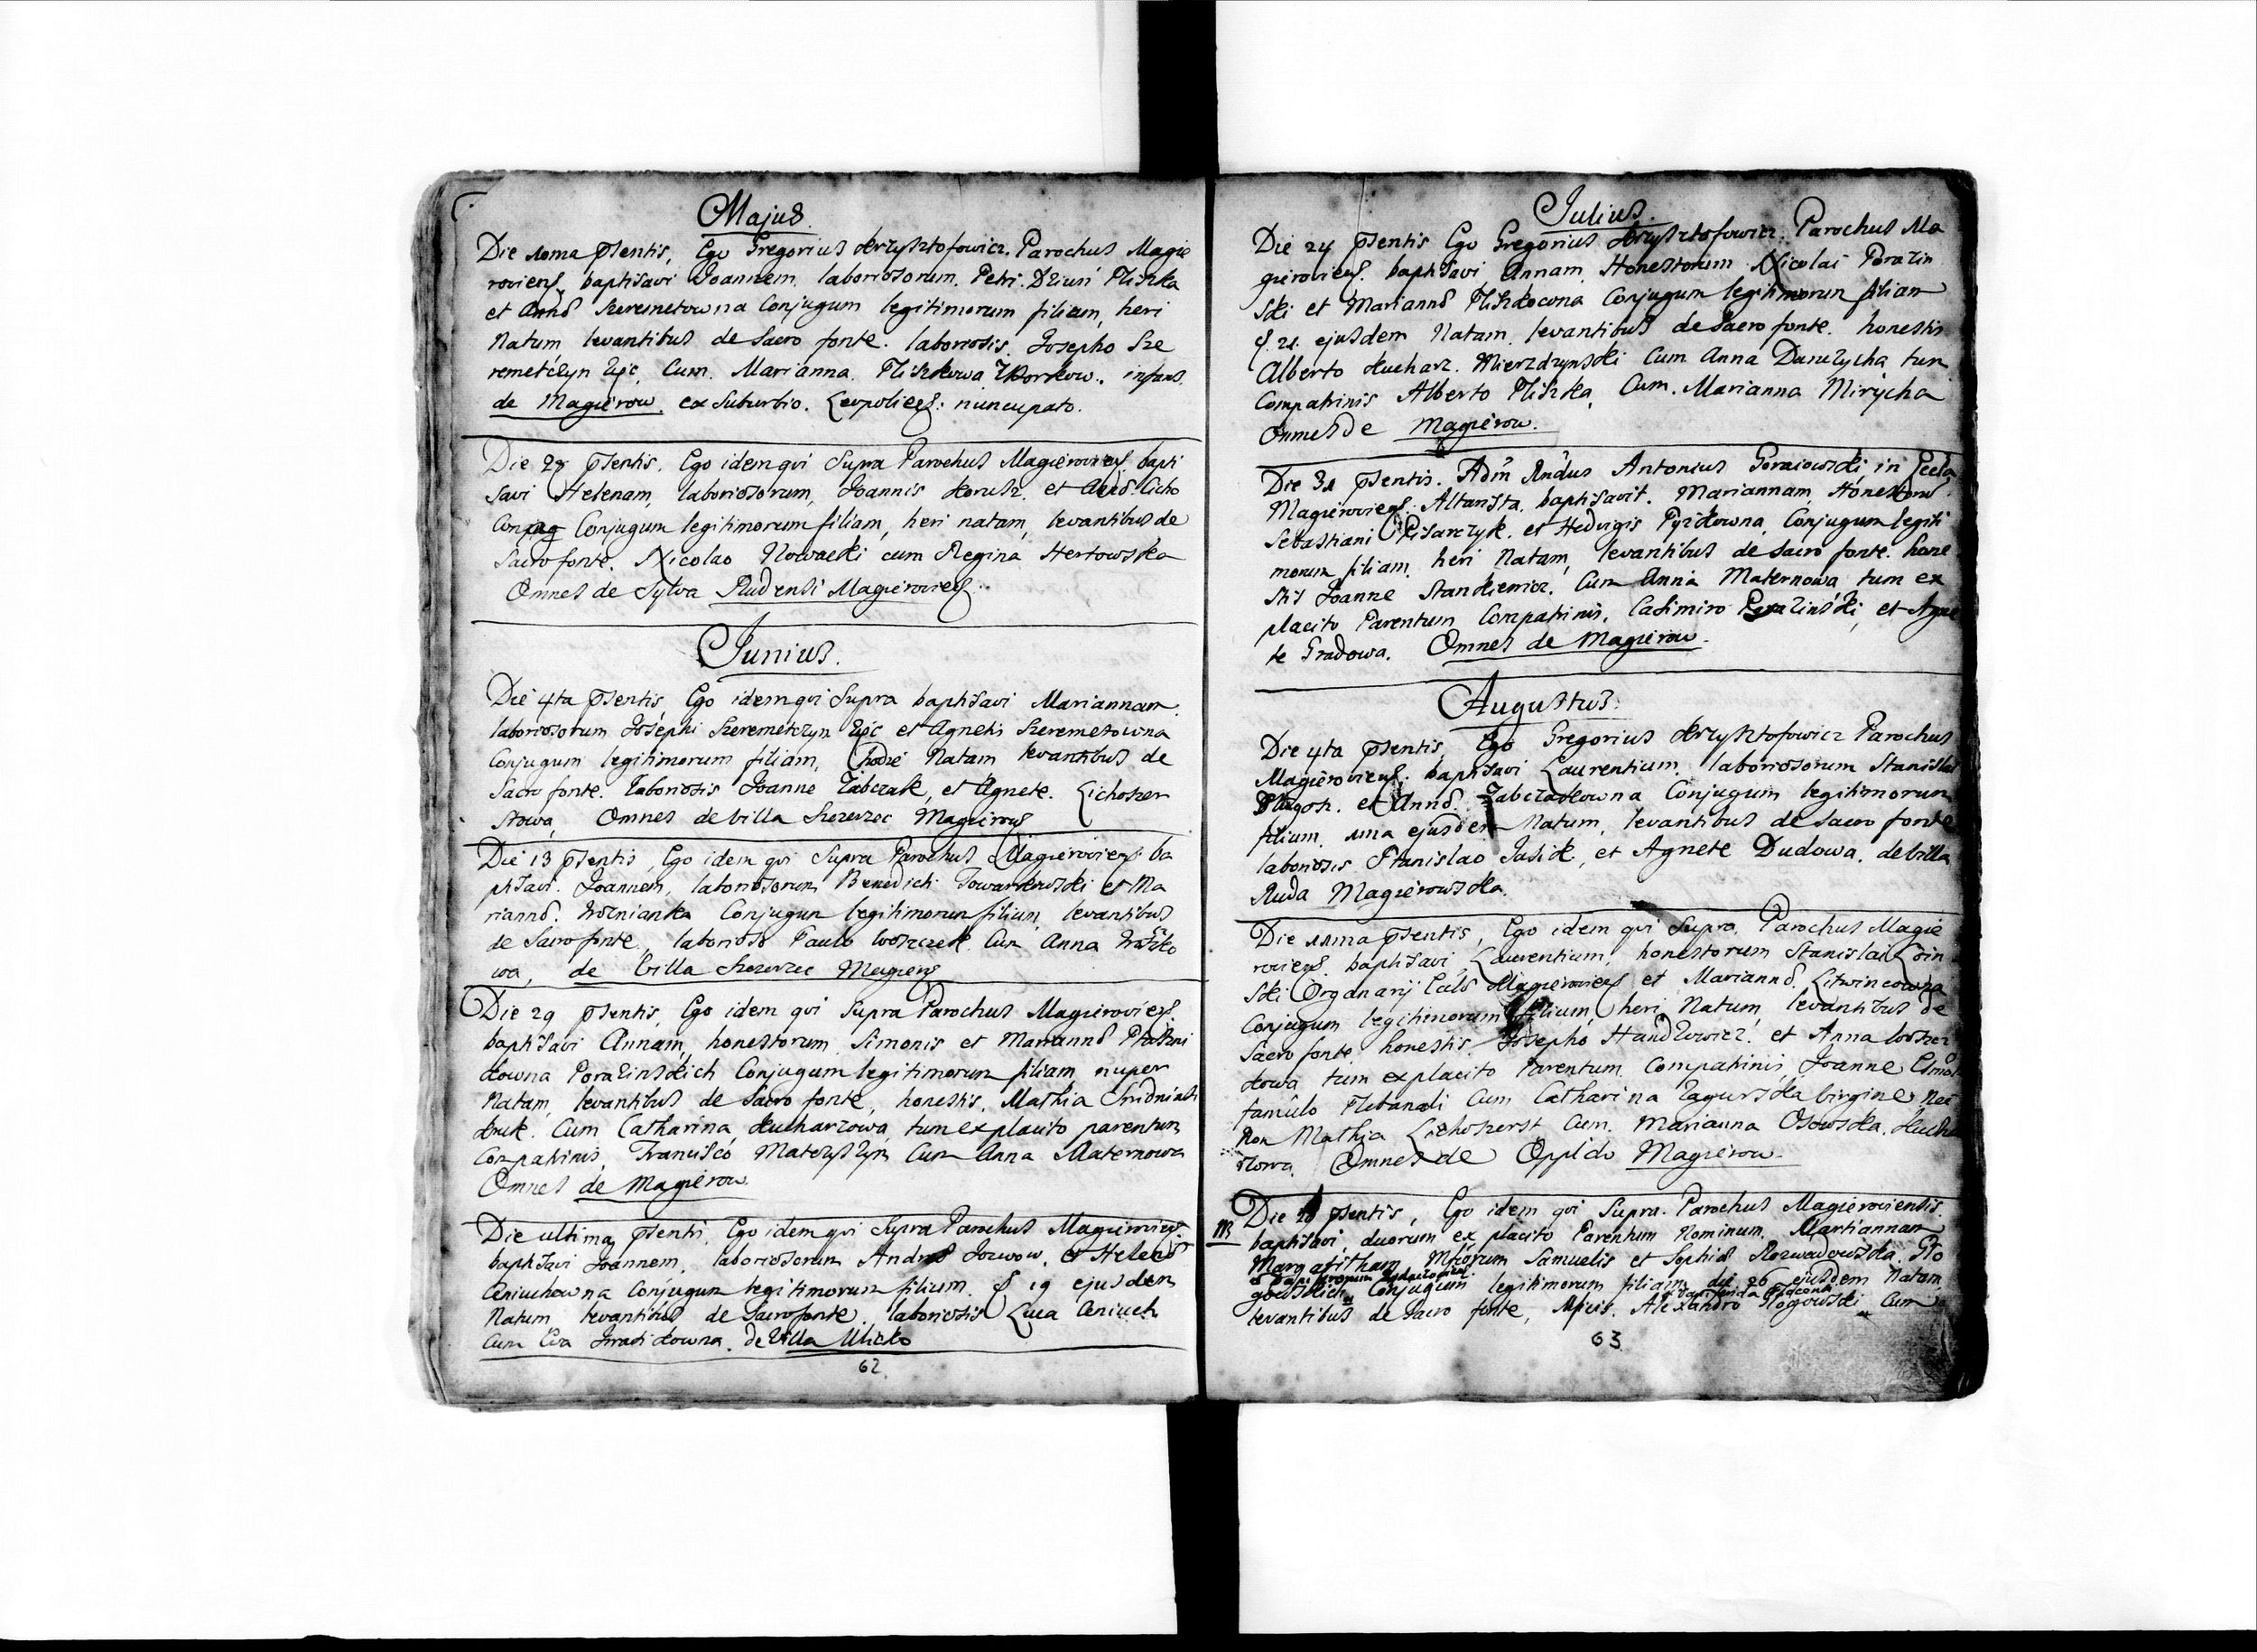 Majus.
Die 10ma psentis, Ego Gregorius Krzysztofowicz Parochus Magie
roviens. baptisavi Joannem, laboriosorum Petri Dziun Pliszka
et Annæ Szeremetowna Conjugum legitimorum filium, heri
Natum levantibus de Sacro fonte. laboriosis. Josepho Sze
remetczyn Zięć, Cum. Marianna. Pliszkowa infans
de Magierow. ex Suburbio. Leopoliens: nuncupato.
Die 28 psentis. Ego idem qui Supra Parochus Magieroviens bapti
savi Helenam, laboriosorum, Joannis Korusz. et Annæ Cicho
Conjugum legitimorum filiam, heri natam, levantibus de
Sacro fonte. Nicolao Nowacki cum Regina Hertowska
Omnes de Sylva Rudensi Magieroviens:
Junius.
Die 4ta psentis, Ego idem qui Supra baptisavi Mariannam
laboriosorum Josephi Szeremetczyn Zięć et Agnetis Szeremetowna
Conjugum legitimorum filiam, hodie Natam levantibus de
Sacro fonte. laboriosis Joanne Zabczak, et Agnete. Lichoszer
stowa, Omnes de Villa Szczerzec Magierows
Die 13 psentis, Ego idem qui Supra Parochus Magieroviens: ba
ptisavi. Joannem, laboriosorum Benedicti Towarkowski et Ma
riannæ. Woznianka Conjugum legitimorum filium, levantibus
de Sacro fonte, laborioso Paulo Woszczek Cum Anna
wa, de Villa Szczerzec Magierens
Die 29 psentis, Ego idem qui Supra Parochus Magieroviens.
baptisavi Annam, honestorum Simonis et Mariannæ
kowna Porazinskich Conjugum legitimorum filiam nuper
Natam, levantibus de Sacro fonte, honestis. Mathia
Cum Catharina Kucharzowa, tum ex placito parentum
Compatrinis, Francisco Mateyszyn Cum Anna Maternowa
Omnes de Magierow
Die ultima psentis, Ego idem qui Supra Parochus Magieroviens.
baptisavi Joannem, laboriosorum Andreæ Jozwow, et Helenæ
Aniuchowna Conjugum legitimorum filium. d 19 ejusdem
Natum, levantibus de Sacro fonte, laboriosis Luca Aniuch
Cum Eva de Villa Ulicko
62.
Julius.
Die 24 psentis Ego Gregorius Krzysztofowicz. Parochus Ma
gieroviens. baptisavi Annam, Honestorum Nicolai Porazin
ski et Mariannæ Pliszkocona Conjugum legitimorum filiam
d. 21. ejusdem Natam, levantibus de Sacro fonte. honestis
Alberto Kucharz. Mierzdzynski Cum Anna Danczycha tum
Compatrinis Alberto Pliszka, Cum. Marianna Mirycha
Omnes de Magierow.
Die 31 psentis. Adm Rndus Antonius Goraiowski, in Eccla
Magieroviens. Altarista, baptisavit. Mariannam, Honestoru
Sebastiani Pisarczyk. et Hedvigis Pyzikowna, Conjugum legiti
morum filiam, heri Natam, levantibus de Sacro fonte. hone
stis Joanne Stankiewicz, Cum Anna Maternowa tum ex
placito Parentum Compatrinis, Casimiro Porazinski, et Agne
te Gradowa. Omnes de Magierow.
Augustus.
Die 4ta psentis, Ego Gregorius Krzysztofowicz Parochus
Magieroviens. baptisavi Laurentium, laboriosorum Stanislai
et Annæ. Zabczakowna Conjugum legitimorum
filium, 1ma ejusdem Natum, levantibus de Sacro fonte
laboriosis Stanislao Jasik, et Agnete Dudowa. de Villa
Ruda Magierowska.
Die 11ma psentis, Ego idem qui Supra. Parochus Magie
roviens. baptisavi, Laurentium, honestorum Stanislai
ski Organarij Eccls Magieroviens et Mariannæ. Litwincowna
Conjugum legitimorum filium, heri Natum, levantibus de
Sacro fonte, honestis. Josepho Handzowicz. et Anna Woszcz
kowa tum ex placito Parentum Compatrinis, Joanne
famulo Plebanali Cum Catharina Zagurska Virgine, nec
non Mathia Lichoszerst Cum. Marianna Osowska.
Omnes de Oppido Magierow.
NB Die 28 psentis, Ego idem qui Supra. Parochus Magieroviensis.
baptisavi, duorum ex placito Parentum Nominum, Mariannam
Margaritham Mficorum Samuelis et Sophiæ Rozwadowska. Glo
gowskich Conjugum legitimorum filiam, die 26 ejusdem Natam
levantibus de Sacro fonte, Mficis. Alexandro Głogowski Cum
63